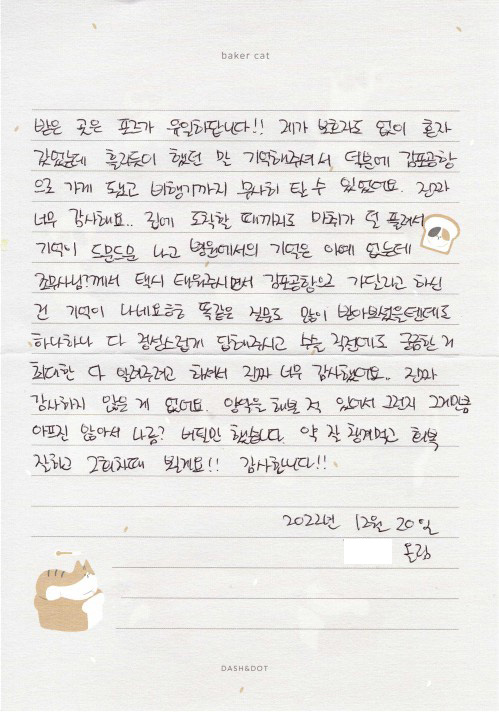 baker cat
받은 곳은 포즈가 유일하답니다!! 제가 보호자도 없이 혼자
갔었는데 흘리듯이 했던 말 기억해주셔서 덕분에 김포공항
으로 가게 됐고 비행기까지 무사히 탈 수 있었어요. 진짜
너무 감사해요.. 집에 도착할 때까지도 마취가 덜 풀려서
기억이 드문드문 나고 병원에서의 기억은 아예 없는데
조무사님?께서 택시 태워주시면서 김포공항으로 가달라고 하신
건 기억이 나네요ㅎㅎ 똑같은 질문도 많이 받아보셨을텐데도
하나하나 다 정성스럽게 답해주시고 수술 직전에도 궁금한 거
최대한 다 알려주려고 하셔서 진짜 너무 감사했어요.. 진짜
감사하지 않은 게 없어요. 양악을 해본 적 있어서 그런지 그때만큼
아프진 않아서 나름? 버틸만 했습니다. 약 잘 챙겨먹고 회복
잘하고 2회차때 뵐게요!! 감사합니다!!
2022년 12월 20일
올림
DASH&DOT